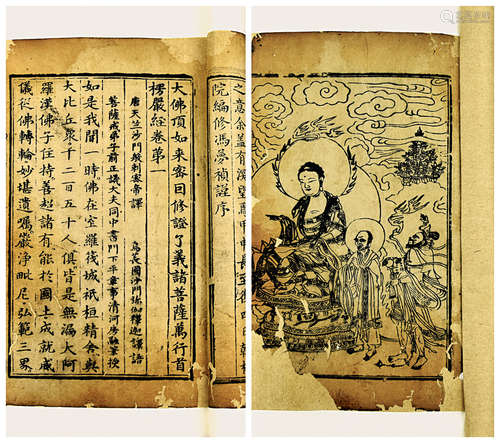 之意余盖有深望焉甲申長至後四日
院編修馮夢禎謹序
大佛頂如來密因修證了義諸菩薩萬行首
楞嚴經卷第一
唐天竺沙門般剌密帝譯
烏萇國沙門彌伽釋迦譯語
菩薩戒弟子前正議大夫同中書門下平章事清河房融筆授
如是我聞一時佛在室羅筏城祇桓精舍與
大比丘衆千二百五十人俱皆是無漏大阿
羅漢佛子住持善超諸有能於國土成就威
儀從佛轉輪妙堪遺囑嚴淨毗尼弘範三界